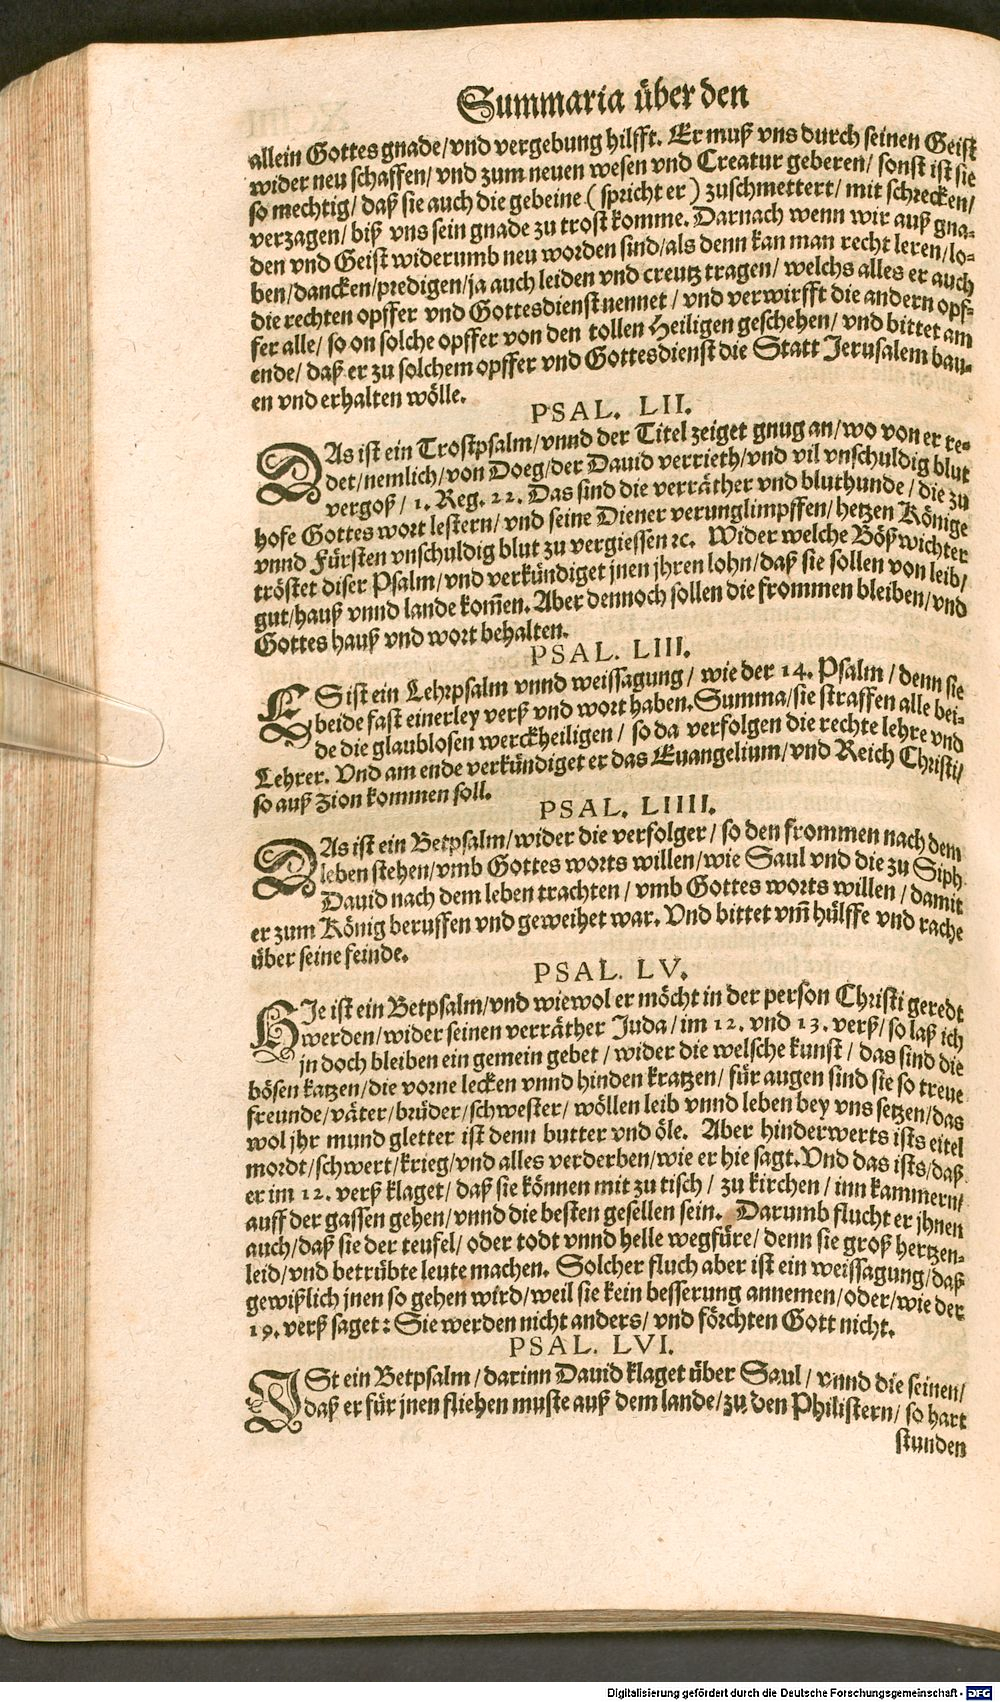 Summaria über den
allein Gottes gnade/vnd vergebung hilfft. Er muß vns durch seinen Geist
wider neu schaffen/ vnd zum neuen wesen vnd Creatur geberen/ sonst ist sie
so mechtig/ daß sie auch die gebeine ( spricht er ) zuschmettert/ mit schrecken/
verzagen/ biß vns sein gnade zu trost komme. Darnach wenn wir auß gna⸗
den vnd Geist widerumb neu worden sind/als denn kan man recht leren/lo⸗
ben/dancken/predigen/ja auch leiden vnd creutz tragen/ welchs alles er auch
die rechten opffer vnd Gottesdienst nennet / vnd verwirfft die andern opf⸗
fer alle/ so on solche opffer von den tollen Heiligen geschehen/ vnd bittet am
ende/ daß er zu solchem opffer vnd Gottesdienst die Statt Jerusalem bau⸗
en vnd erhalten wölle.
PSAL. LII.
DAs ist ein Trostpsalm/vnnd der Titel zeiget gnug an/wo von er re⸗
det/nemlich/von Doeg/der Dauid verrieth/vnd vil vnschuldig blut
vergoß / 1. Reg. 22. Das sind die verräther vnd bluthunde / die zu
hofe Gottes wort lestern/ vnd seine Diener verunglimpffen/ hetzen Könige
vnnd Fürsten vnschuldig blut zu vergiessen ꝛc. Wider welche Bößwichter
tröstet diser Psalm/vnd verkündiget jnen jhren lohn/daß sie sollen von leib/
gut/hauß vnnd lande kom̃en. Aber dennoch sollen die frommen bleiben/vnd
Gottes hauß vnd wort behalten.
PSAL. LIII.
ES ist ein Lehrpsalm vnnd weissagung / wie der 14. Psalm / denn sie
beide fast einerley verß vnd wort haben. Summa/sie straffen alle bei⸗
de die glaublosen werckheiligen / so da verfolgen die rechte lehre vnd
Lehrer. Vnd am ende verkündiget er das Euangelium/vnd Reich Christi/
so auß Zion kommen soll.
PSAL. LIIII.
DAs ist ein Betpsalm/wider die verfolger / so den frommen nach dem
leben stehen/vmb Gottes worts willen/wie Saul vnd die zu Siph
Dauid nach dem leben trachten / vmb Gottes worts willen / damit
er zum König beruffen vnd geweihet war. Vnd bittet vm̃ hülffe vnd rache
über seine feinde.
PSAL. LV.
HIe ist ein Betpsalm/vnd wiewol er möcht in der person Christi geredt
werden/wider seinen verräther Juda/ im 12. vnd 13. verß/ so laß ich
jn doch bleiben ein gemein gebet / wider die welsche kunst / das sind die
bösen katzen/die vorne lecken vnnd hinden kratzen/ für augen sind sie so treue
freunde/väter/brüder/schwester/ wöllen leib vnnd leben bey vns setzen/das
wol jhr mund gletter ist denn butter vnd öle. Aber hinderwerts ists eitel
mordt/schwert/krieg/vnd alles verderben/wie er hie sagt. Vnd das ists/daß
er im 12. verß klaget/ daß sie können mit zu tisch / zu kirchen / inn kammern/
auff der gassen gehen/vnnd die besten gesellen sein. Darumb flucht er jhnen
auch/daß sie der teufel/ oder todt vnnd helle wegfüre/ denn sie groß hertzen⸗
leid/vnd betrübte leute machen. Solcher fluch aber ist ein weissagung/daß
gewißlich jnen so gehen wird/weil sie kein besserung annemen/oder/wie der
19. verß saget: Sie werden nicht anders/ vnd förchten Gott nicht.
PSAL. LVI.
ISt ein Betpsalm / darinn Dauid klaget über Saul / vnnd die seinen/
daß er für jnen fliehen muste auß dem lande/zu den Philistern/ so hart
stunden
Digitalisierung gefördert durch die Deutsche Forschungsgemeinschaft - DFG